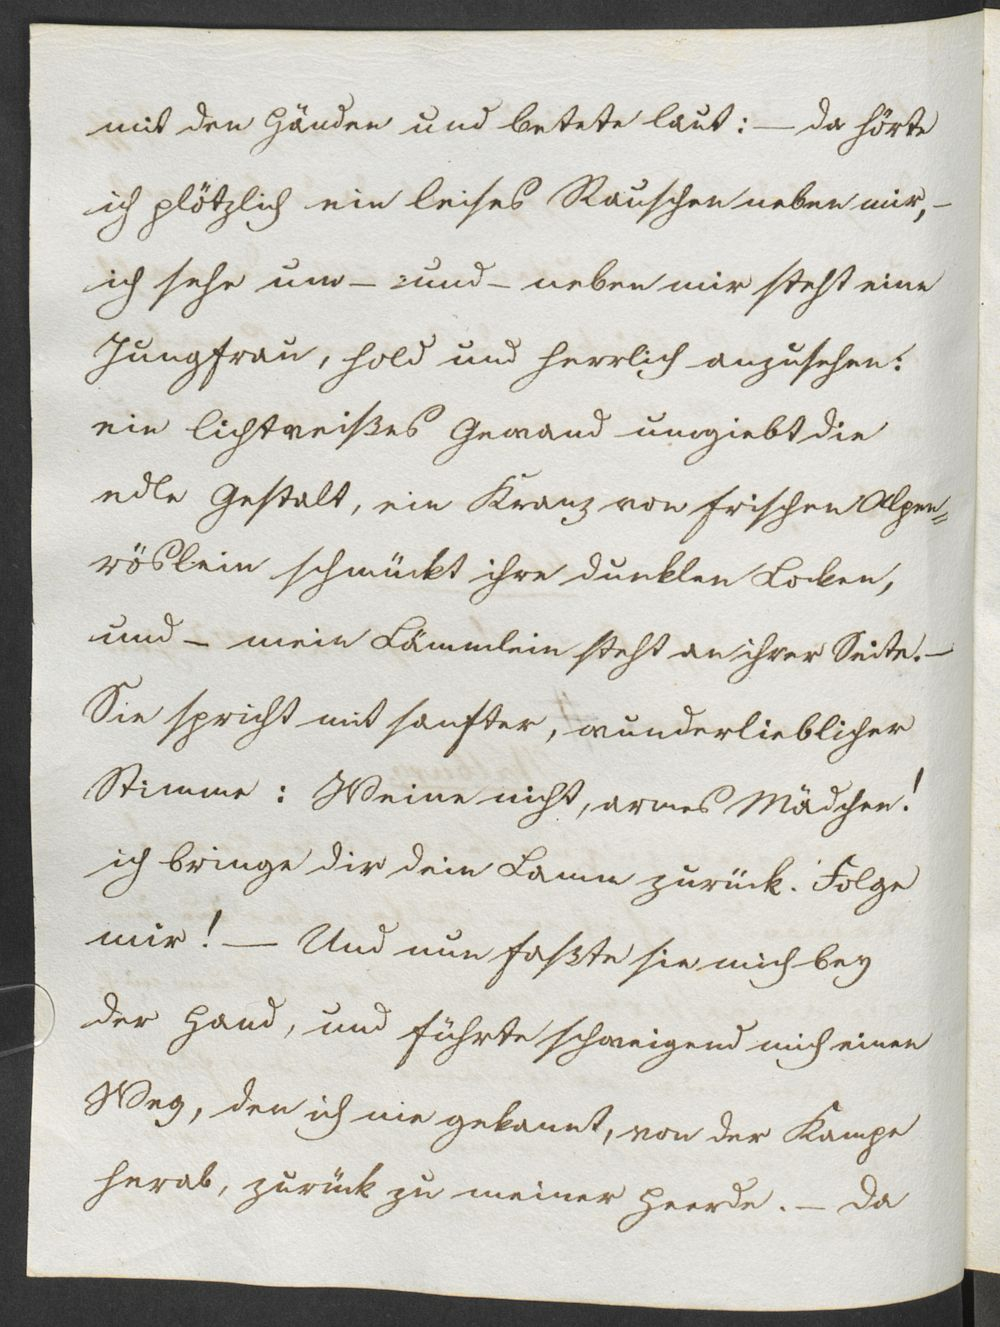 mit den Händen und betete laut: — da hörte
ich plötzlich ein leises Rauschen neben mir, –
ich sehe um – und – neben mir steht eine
Jungfrau, hold und herrlich anzusehen:
ein lichtweißes Gewand umgiebt die
edle Gestalt, ein Kranz von frischen Alpen=
röslein schmückt ihre dunklen Locken,
und – mein Lämmlein steht an ihrer Seite. –
Sie spricht mit sanfter, wunderlieblicher
Stimme : Weine nicht, armes Mädchen!
ich bringe dir dein Lamm zurück. Folge
mir! — Und nun faßte sie mich bey
der Hand, und führte schweigend mich einen
Weg, den ich nie gekannt, von der Kampe
herab, zurück zu meiner Heerde. – Da